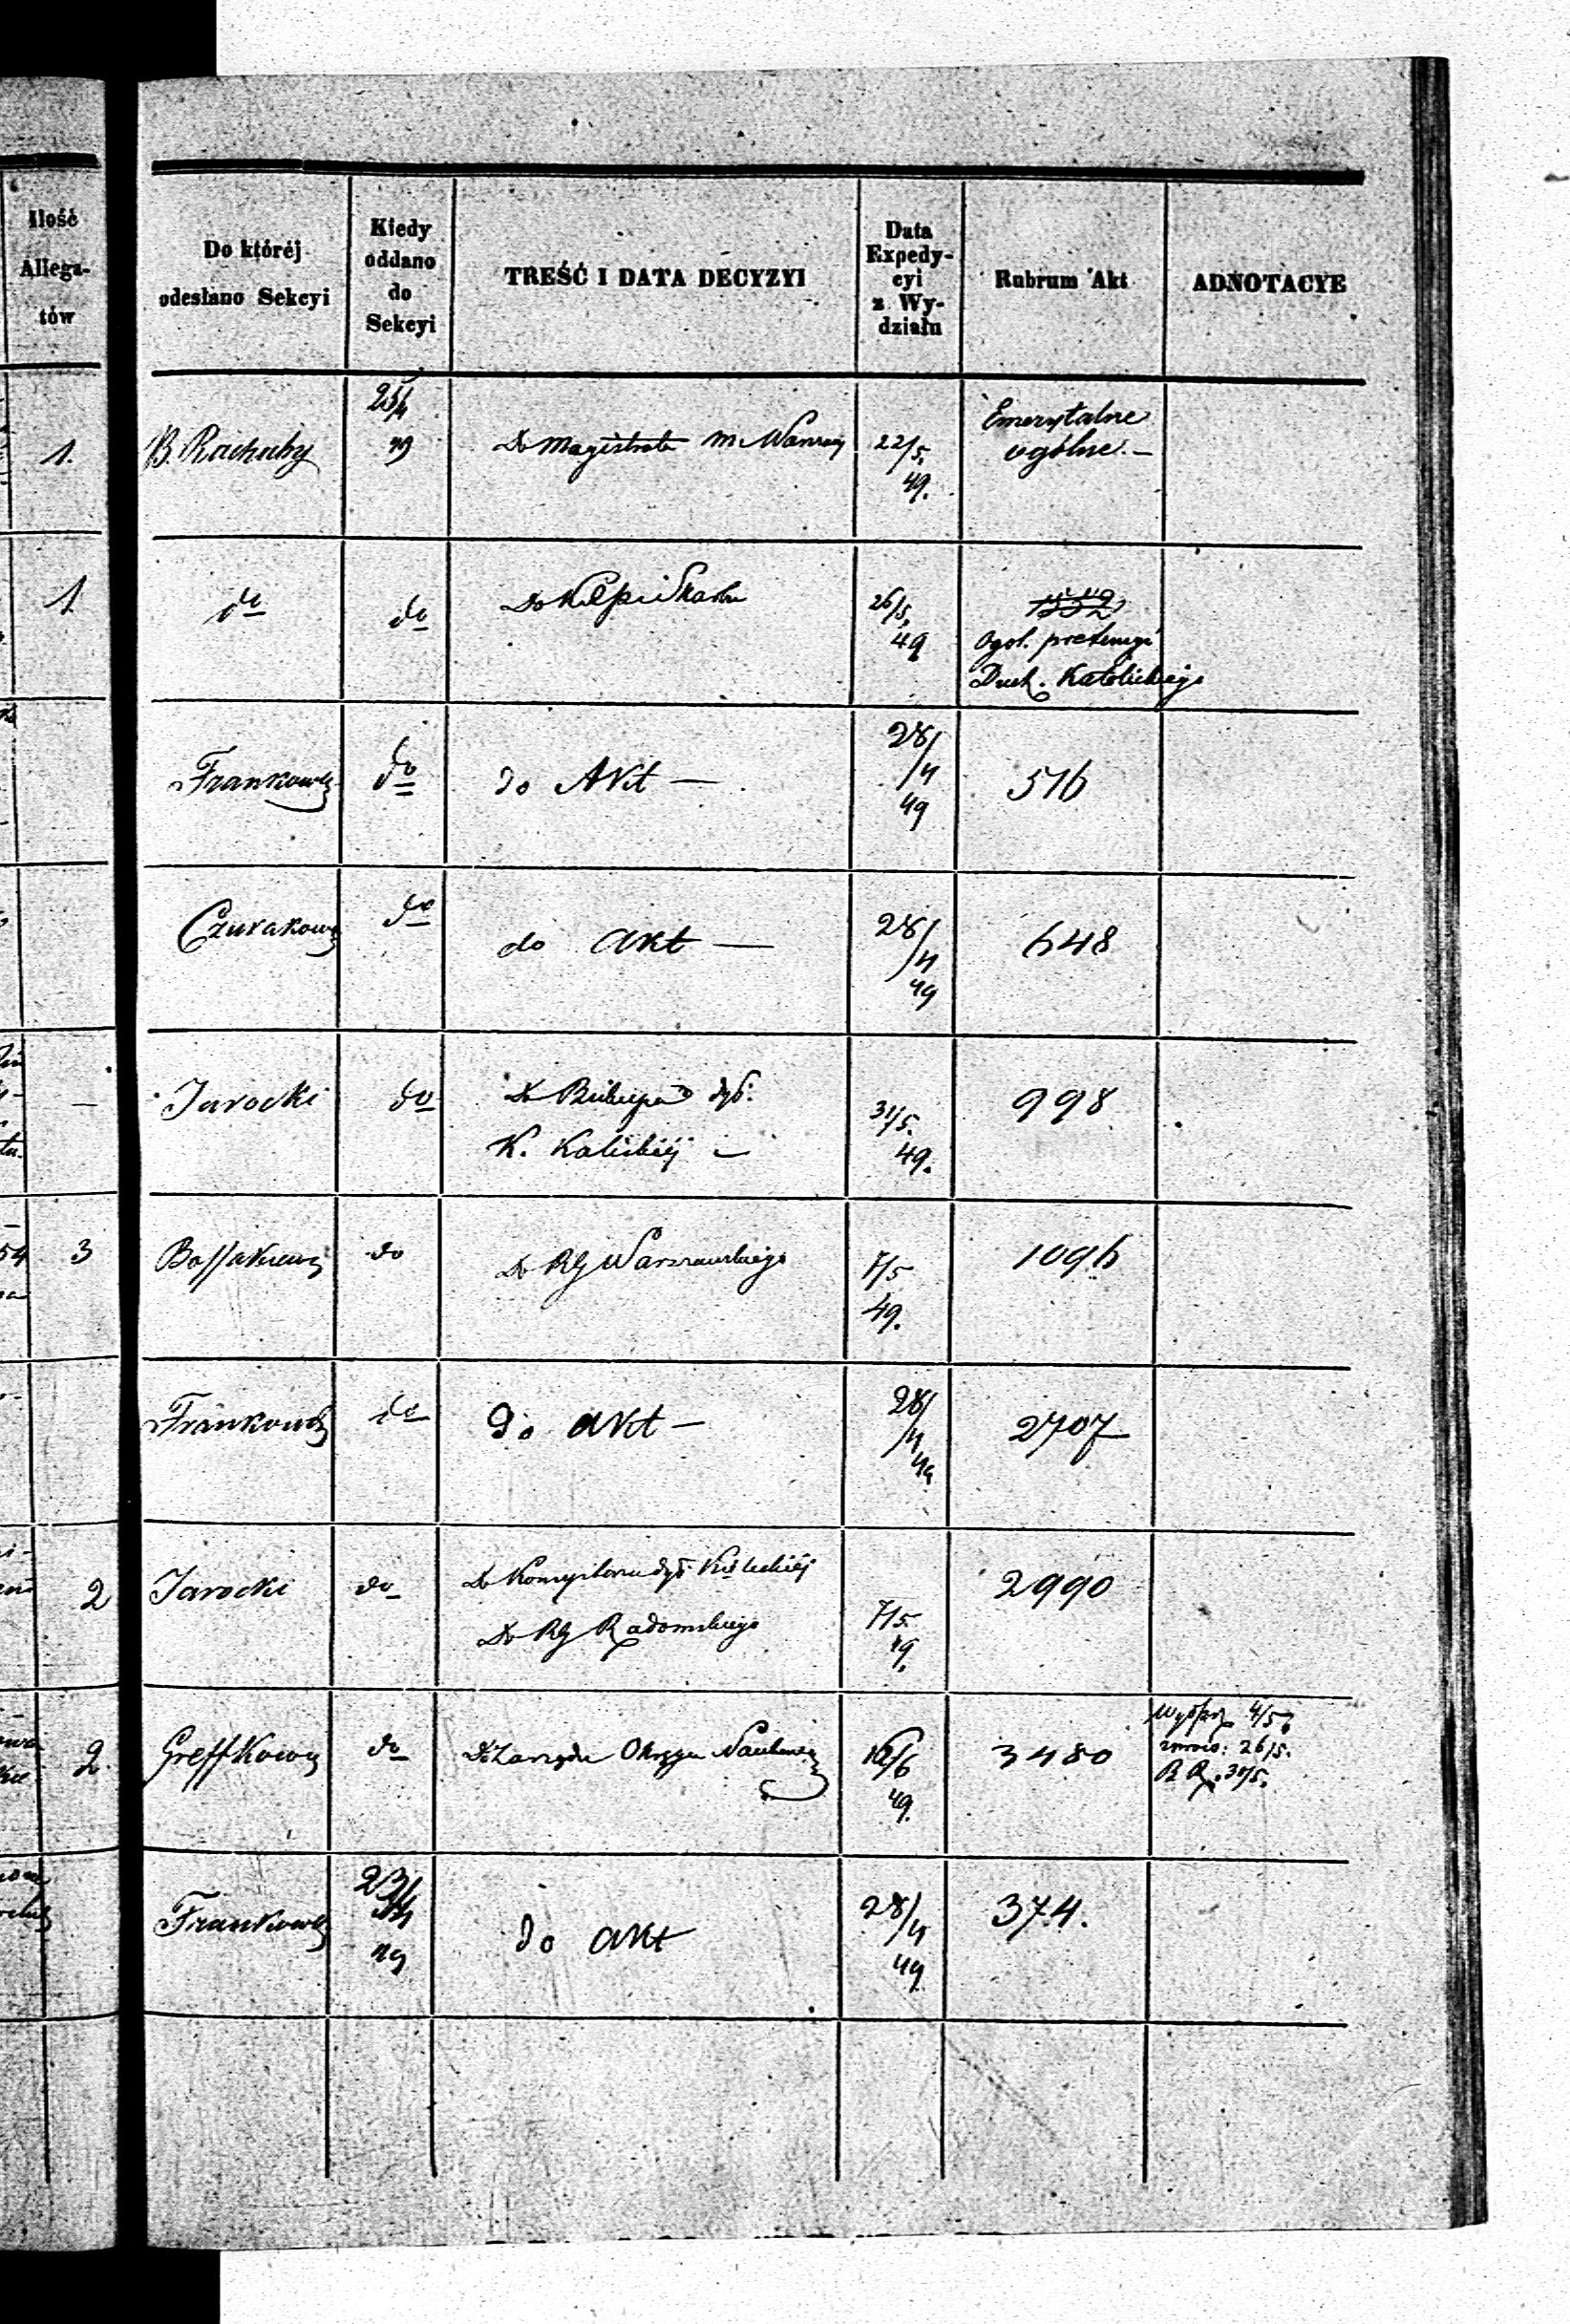 Ilość
Allega-
tów
Do któréj
odesłano Sekcyi
Kiedy
oddano
do
Sekcyi
TREŚĆ I DATA DECYZYI
Data
Expedy-
cyi
z Wy-
działu
Rubrum Akt
ADNOTACYE
1. B. Rachuby 25/4 49 Do Magistratu m Warszawy 22/5. 49. Emerytalne
ogólne. —
1 do do Do 26/5. 49 1552
Ogól. pretensyi
Duch. Katolickiego
Frankowy do do Akt — 28/4 49 516
Czurakowy do do akt — 28/4 49 648
— Jarocki do Do Biskupa dyć.
K. Kaliskiéj — 31/5. 49. 998
3 do Do RG Warszawskiego 7/5 49. 1096
Frankowy do Do akt — 28/4 49 2707
2 Jarocki do Do Konsystorza dyć. Kieleckiéj
Do RG Radomskiego 7/5. 49. 2990
2. Greffkowy do Do Zarządu Okręgu Naukowego 49. 3480
4/5
26/5.
31/5.
Frankowy 49 do akt 28/4 49 374.